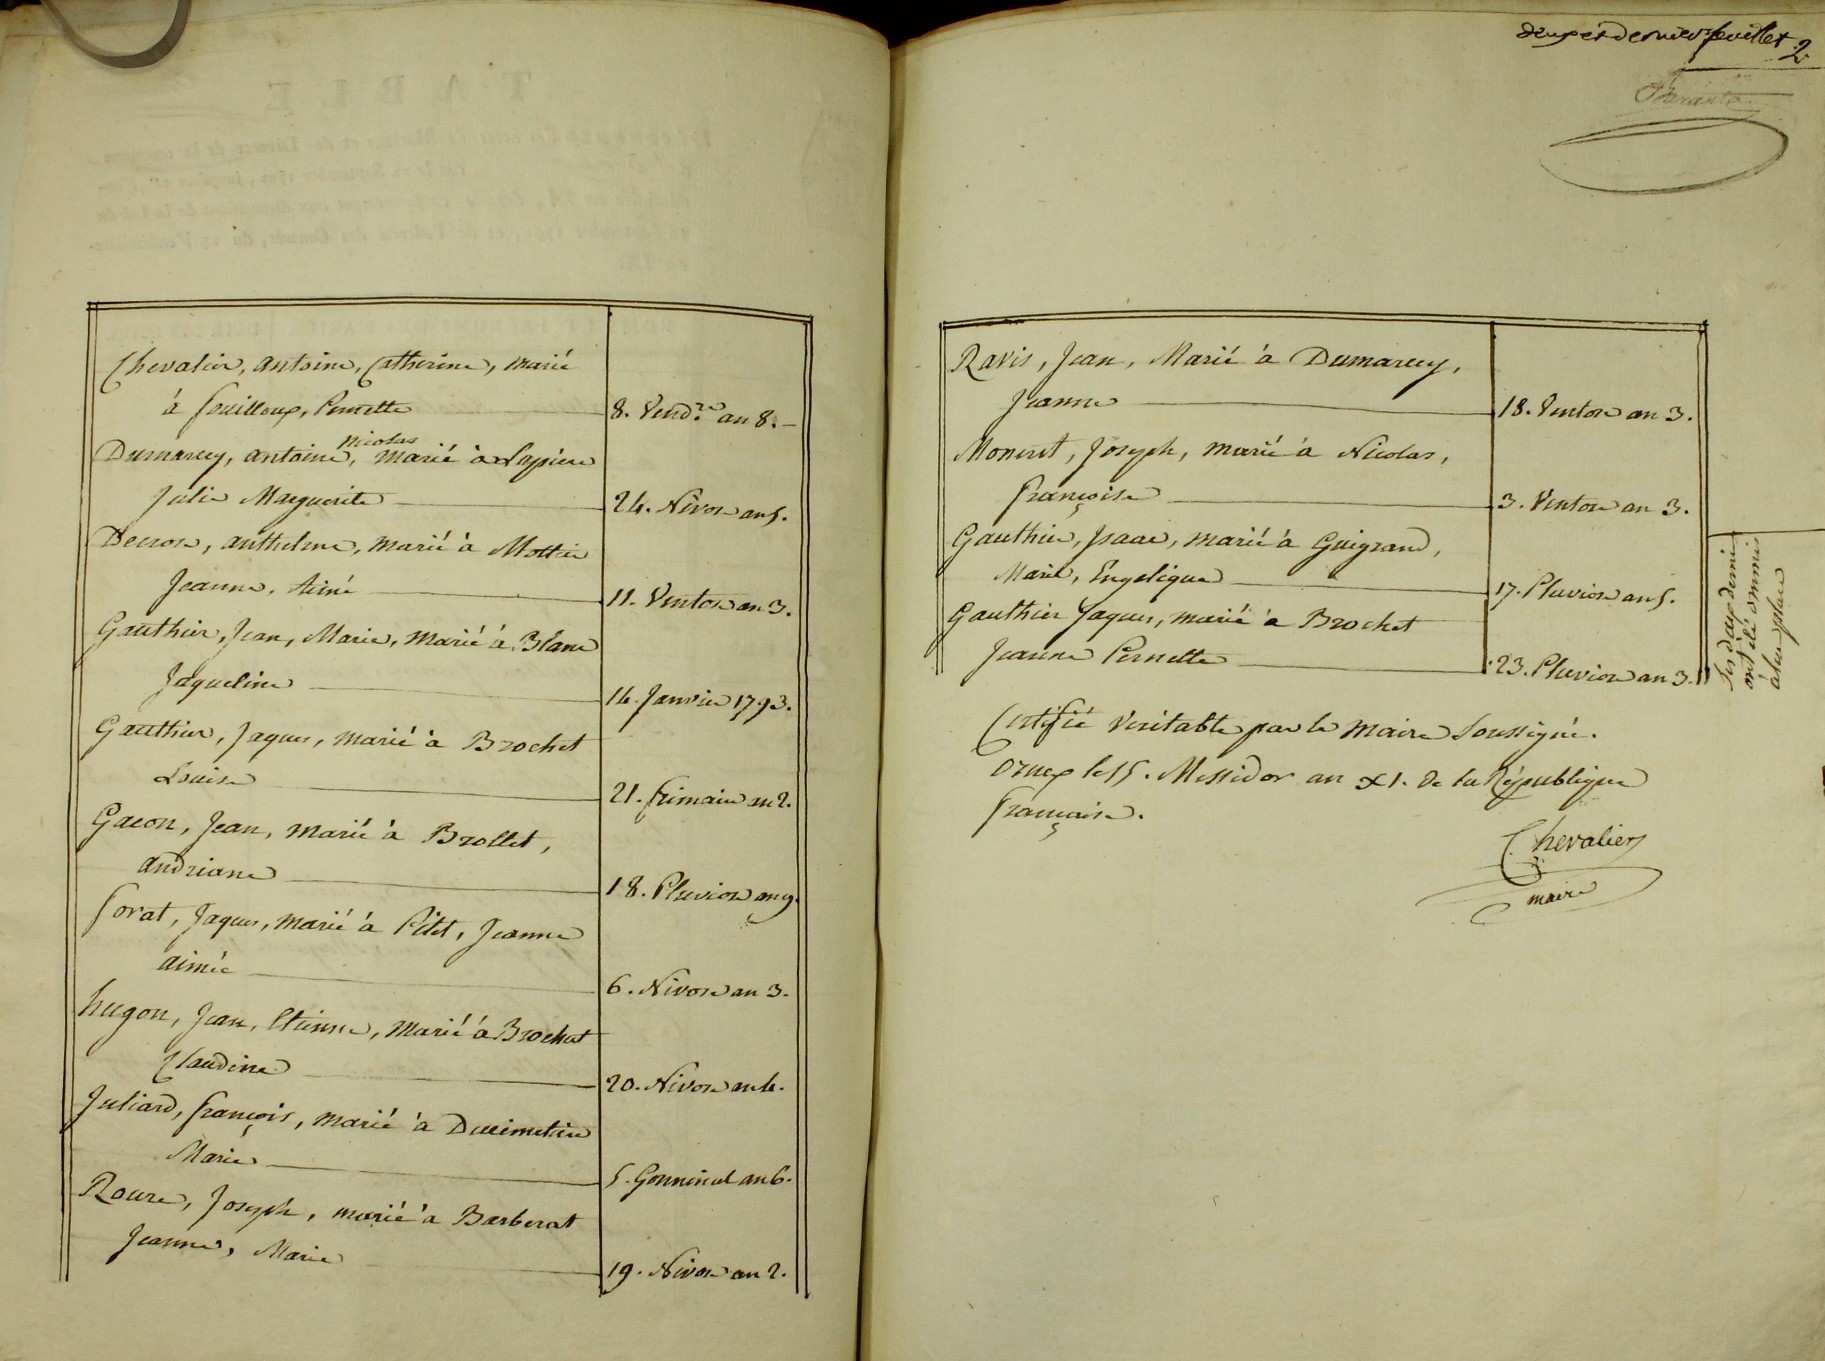 Chevalier, antoine, Catherine, marié
à fouilloux, Pernette 8. Vend.re an 8.
Dumarcey, antoine, nicolas marié à Lapierre
Julie Marguerite 24. Nivose an 5.
Decrose, anthelme, marié à Mottier
Jeanne, Aimé 11. Ventose an 3.
Gauthier, Jean, Marie, marié à Blanc
Jaqueline 14. Janvier 1793.
Gauthier, Jaques, marié à Brochet
Louise 21. frimaire an 2.
Gacon, Jean, marié à Brollet,
andriane 18. Pluviose an 9.
forat, Jaques, marié à Pitet, Jeanne
aimée 6. Nivose an 3.
hugon, Jean, Etienne, marié à Brochet
Claudine 20. Nivose an 4.
Juliard, françois, marié à Ducimetiere
Marie 5. an 6.
Roure, Joseph, marié à Barberat
Jeanne, Marie 19. Nivose an 2.
deuxe et dernier feuillet 2
Ravis, Jean, Marié à Dumarcey,
Jeanne 18. Ventose an 3.
Moneret, Joseph, marié à Nicolas,
françoise 3. Ventose an 3.
Gauthier, Isaac, marié à Guigrand,
Marie, Engelique 17. Pluviose an 5.
Gauthier Jaques, marié à Brochet
Jeanne Pernette 23. Pluviose an 3.
ont été ommis
à leur place
Certifié Veritable par le Maire Soussigné.
Ornex le 15. Messidor an XI. de la République
française.
Chevalier
maire